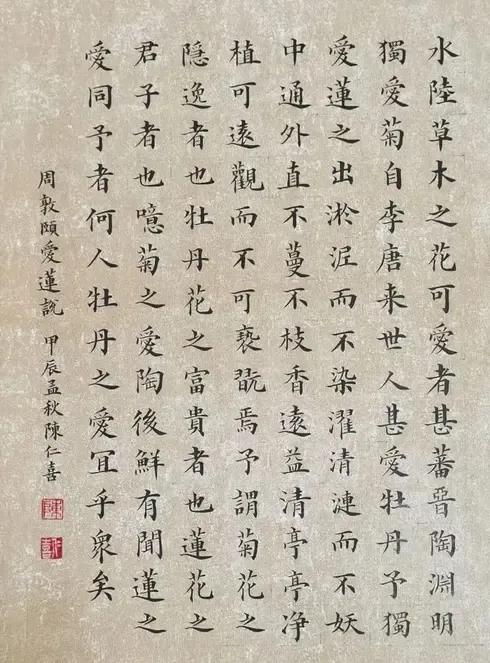 水陸草木之花可愛者甚蕃晉陶淵明
獨愛菊自李唐来世人甚愛牡丹予獨
愛蓮之出淤泥而不染濯清漣而不妖
中通外直不蔓不枝香遠益清亭亭净
植可遠觀而不可褻翫焉予謂菊花之
隱逸者也牡丹花之富貴者也蓮花之
君子者也噫菊之愛陶後鮮有聞蓮之
愛同予者何人牡丹之愛冝乎眾矣
周敦頤愛蓮說 甲辰孟秋陳仁喜